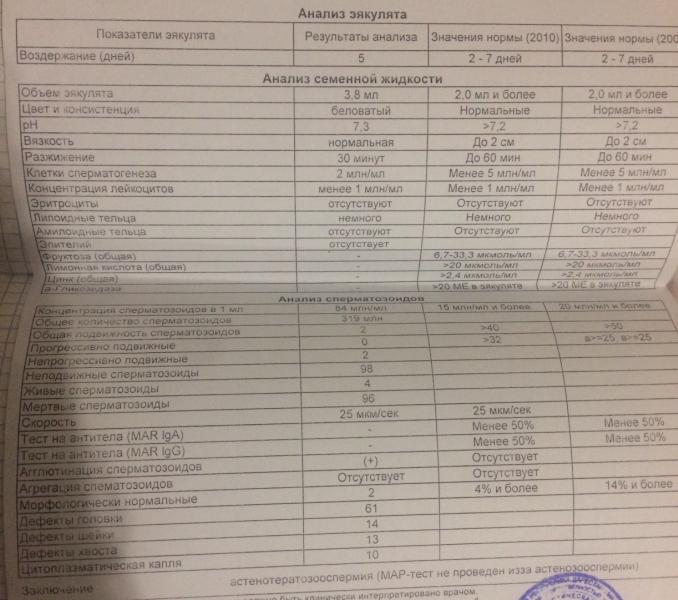 Анализ эякулята
Показатели эякулята Результаты анализа Значения нормы (2010) Значения нормы (200
Воздержание (дней) 5 2 - 7 дней 2 - 7 дней
Анализ семенной жидкости
Объем эякулята 3,8 мл 2,0 мл и более 2,0 мл и более
Цвет и консистенция беловатый Нормальные Нормальные
pH 7,3 >7,2 >7,2
Вязкость нормальная До 2 см До 2 см
Разжижение 30 минут До 60 мин До 60 мин
Клетки сперматогенеза 2 млн/мл Менее 5 млн/мл Менее 5 млн/мл
Концентрация лейкоцитов менее 1 млн/мл Менее 1 млн/мл Менее 1 млн/мл
Эритроциты отсутствуют Отсутствуют Отсутствуют
Липоидные тельца немного Немного Немного
Амилоидные тельца отсутствуют Отсутствуют Отсутствуют
Эпителий отсутствует
Фруктоза (общая) - 6,7-33,3 мкмоль/мл 6,7-33,3 мкмоль/мл
Лимонная кислота (общая) - >20 мкмоль/мл >20 мкмоль/мл
Цинк (общая) - >2,4 мкмоль/мл >2,4 мкмоль/мл
a-Гликозидаза - >20 МЕ в эякуляте >20 МЕ в эякуляте
Анализ сперматозоидов
Концентрация сперматозоидов в 1 мл 84 млн/мл 15 млн/мл и более 20 млн/мл и более
Общее количество сперматозоидов 319 млн
Общая подвижность сперматозоидов 2 >40 >50
Прогрессивно подвижные 0 >32 a>=25, в>=25
Непрогрессивно подвижные 2
Неподвижные сперматозоиды 98
Живые сперматозоиды 4
Мертвые сперматозоиды 96
Скорость 25 мкм/сек 25 мкм/сек
Тест на антитела (MAR IgA) - Менее 50% Менее 50%
Тест на антитела (MAR IgG) - Менее 50% Менее 50%
Агглютинация сперматозоидов (+) Отсутствует
Агрегация спематозоидов Отсутствует Отсутствует
Морфологически нормальные 2 4% и более 14% и более
Дефекты головки 61
Дефекты шейки 14
Дефекты хвоста 13
Цитоплазматическая капля 10
Заключение астенотератозооспермия (МАР-тест не проведен изза астенозооспермии)
быть клинически интерпретировано врачом.